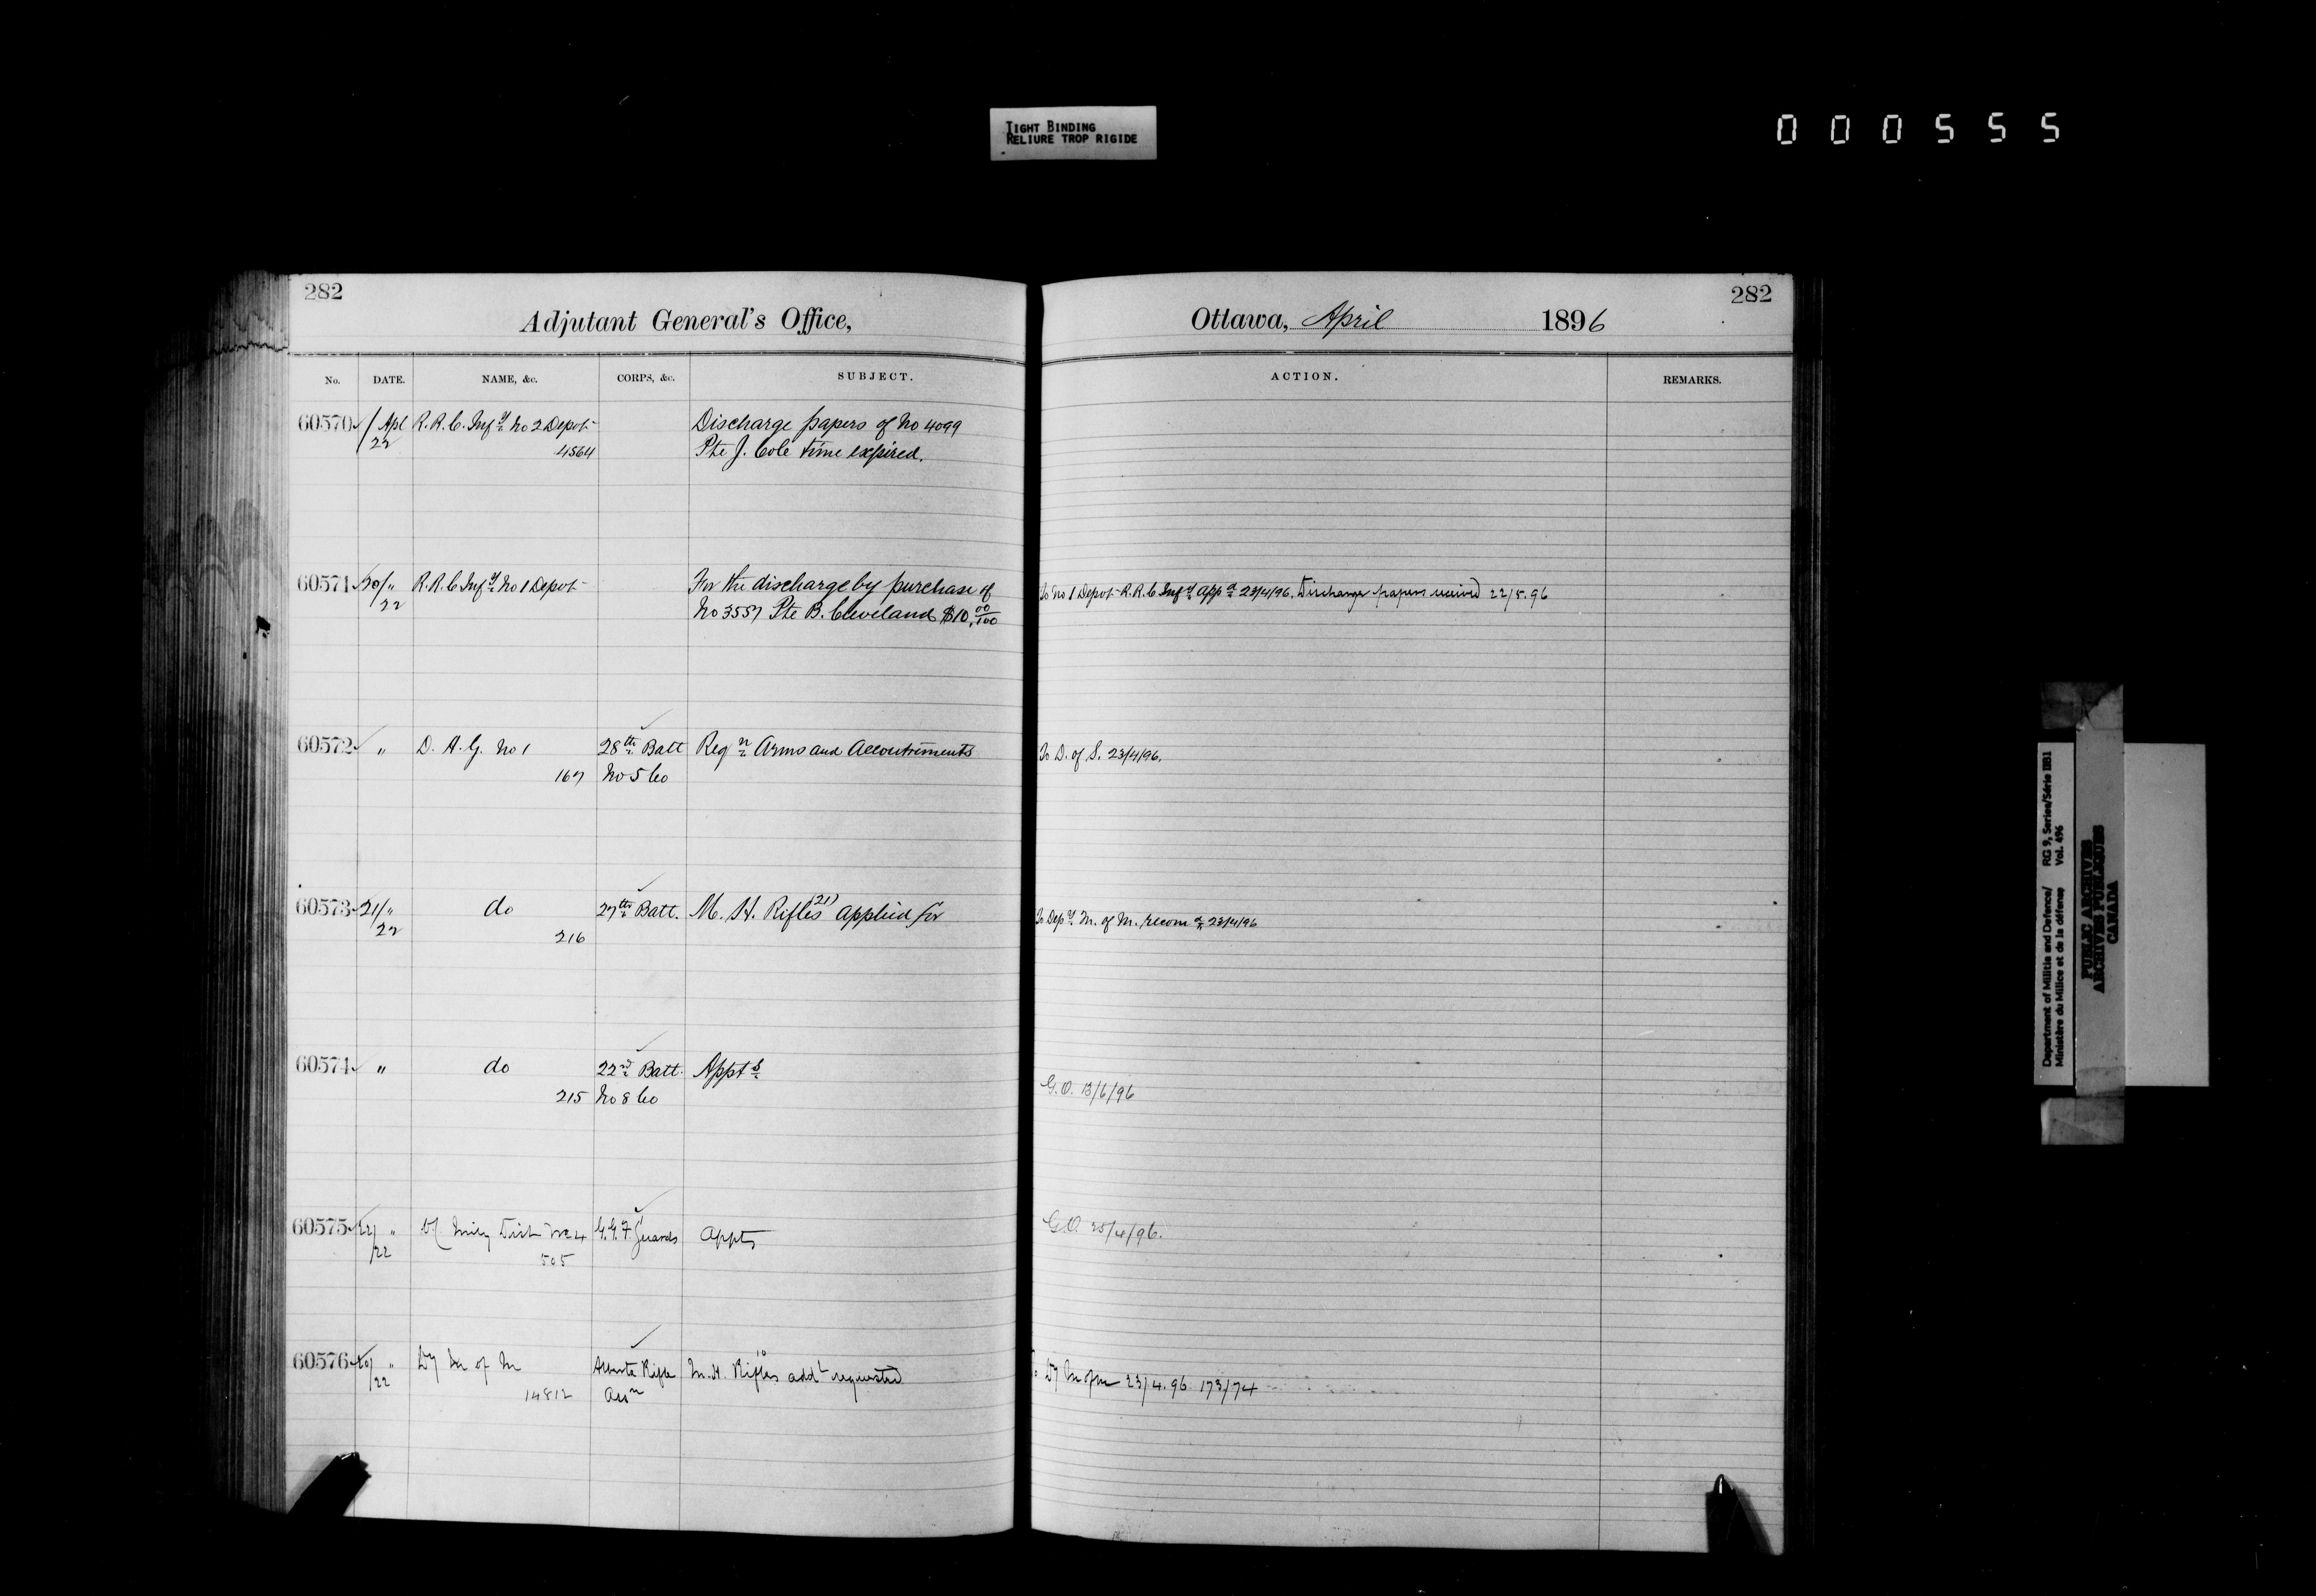 TIGHT BINDING
RELIURE TROP RIGIDE
000555
282
Adjutant General's Office,
No. DATE. NAME, &c. CORPS, &c. SUBJECT.
60570 / Apl R.R.C. Infy No 2 Depot Discharge papers of No 4099
22 4564 Pte J. Cole time expired.
60571 20/ " R.R.C Infy No 1 Depot For the discharge by purchase of
22 No 3557 Pte B. Cleveland $10.00/100
60572 " D.A.G. No 1 28th Batt Reqn Arms and Accoutrements
167 No 5 Co
60573 21/ " do 27th Batt. M.H. Rifles (21) applied for
22 216
60574 " do 22nd Batt. Appts
215 No 8 Co
60575 22/ " Mily Dist No 4 G.G.F. Guards Appts
/22 505
60576 20/ " Dy M of M Rifle M.H. Rifles 10 addl requested
/22 14812 Assn
282
Ottawa, April 1896
ACTION. REMARKS.
To No 1 Depot R.R.C Infy appd 23/4/96. Discharge papers received 22/5.96
To D. of S. 23/4/96.
To Depy M. of M. recomd 23/4/96
G.O. 13/6/96
G.O. 25/4/96.
To Dy M of M 23/4.96 173/74
Department of Militia and Defence/ RG 9, Series/Série IIB1
Ministère du Milice et de la défense Vol. 496
PUBLIC ARCHIVES
ARCHIVES PUBLIQUES
CANADA